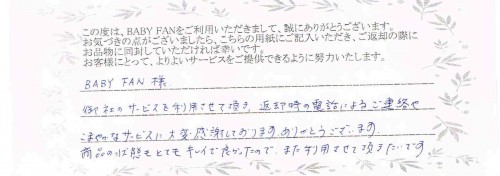 この度は、BABY FANをご利用いただきまして、誠にありがとうございます。
お気づきの点がございましたら、こちらの用紙にご記入いただき、ご返却の際に
お品物に同封していただければ幸いです。
お客様にとって、よりよいサービスをご提供できるように努力いたします。
BABY FAN 様
御社のサービスを利用させて頂き、返却時の電話によるご連絡や
こまやかなサービスに大変感謝しております。ありがとうございます。
商品の状態もとてもキレイで良かったので、また利用させて頂きたいです